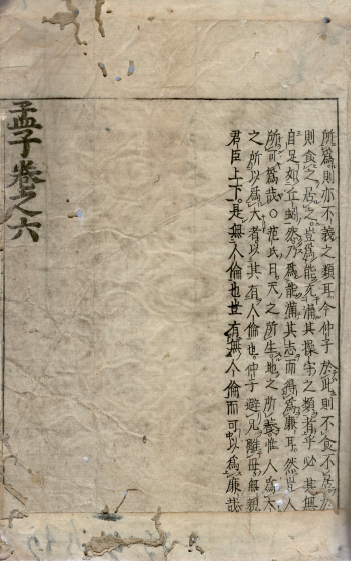 所爲則亦不義之類耳今仲子於此則不食不居
則食之居之豈爲能充滿其操守之類者乎必其無
自足如丘蚓然乃爲能滿其志而得爲廉耳然豈人
所可爲哉○范氏曰天之所生地之所養惟人爲大人
之所以爲大者以其有人倫也仲子避兄離母無親戚
君臣上下是無人倫也豈有無人倫而可以爲廉哉
孟子卷之六